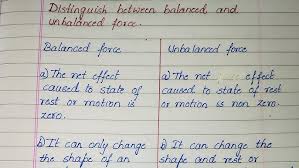 Distinguish between balanced and
unbalanced force.
Balanced force
Unbalanced force
a) The net effect
caused to state of
rest or motion is
zero.
a) The net effect
caused to state of rest
or motion is non zero.
b) It can only change
the shape of an
b) It can change the
shape and rest or